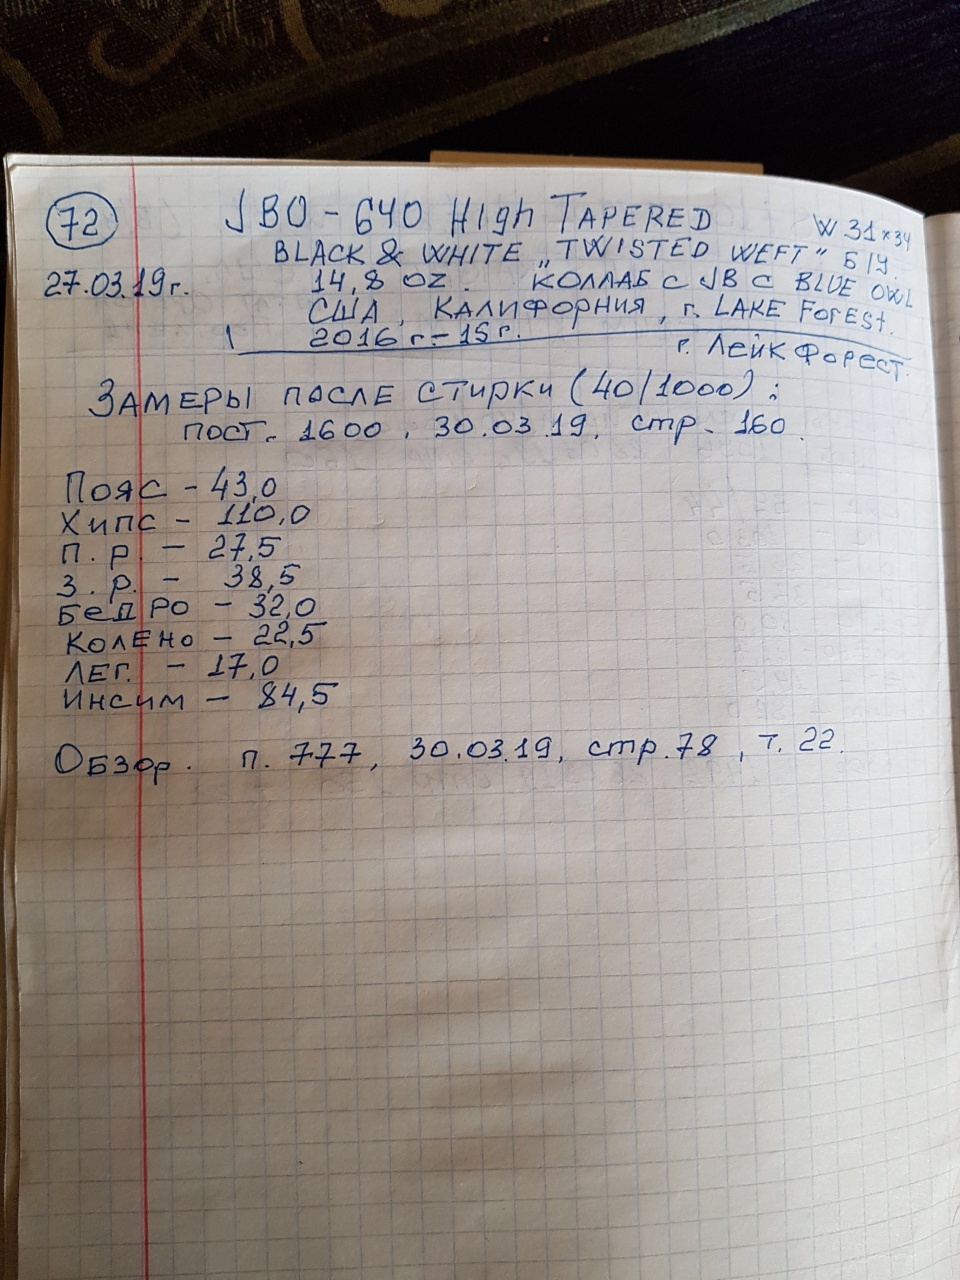 72
JBO - 640 HIgh TAPERED
W 31 x 34
BLACK & WHITE „TWISTED WEFT" Б/У.
27.03.19г. 14,8 OZ. КОЛЛАБ С JB С BLUE OWL
США, КАЛИФОРНИЯ, г. LAKE ForESt.
2016 г - 15 г.
г. ЛЕЙК ФОРЕСТ.
ЗАМЕРЫ ПОСЛЕ СТИРКИ (40/1000):
ПОСТ. 1600, 30.03.19, стр. 160.
ПОЯС - 43,0
ХИПС - 110,0
П.Р. - 27,5
З.Р. - 38,5
БЕДРО - 32,0
КОЛЕНО - 22,5
ЛЕГ. - 17,0
ИНСИМ - 84,5
ОБЗОР. п. 777, 30.03.19, стр. 78, т. 22.